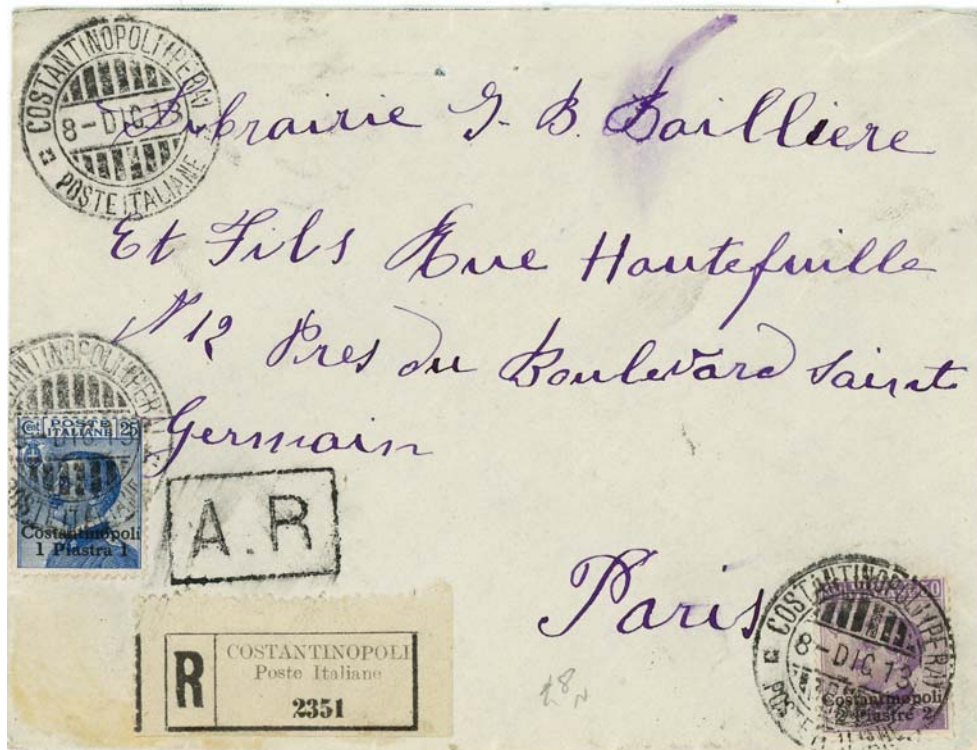 COSTANTINOPOLI (PERA)
8-DIC.13
POSTE ITALIANE
Librairie J. B. Bailliere
Et Fils Rue Hautefuille
N 12 Pres du Boulevard Sainte
Germain
Paris
COSTANTINOPOLI (PERA)
POSTE ITALIANE
Cent POSTE 25
ITALIANE
Costantinopoli
1 Piastra 1
A.R
R
COSTANTINOPOLI
Poste Italiane
2351
COSTANTINOPOLI (PERA)
8-DIC.13
POSTE ITALIANE
50
Costantinopoli
2 Piastre 2